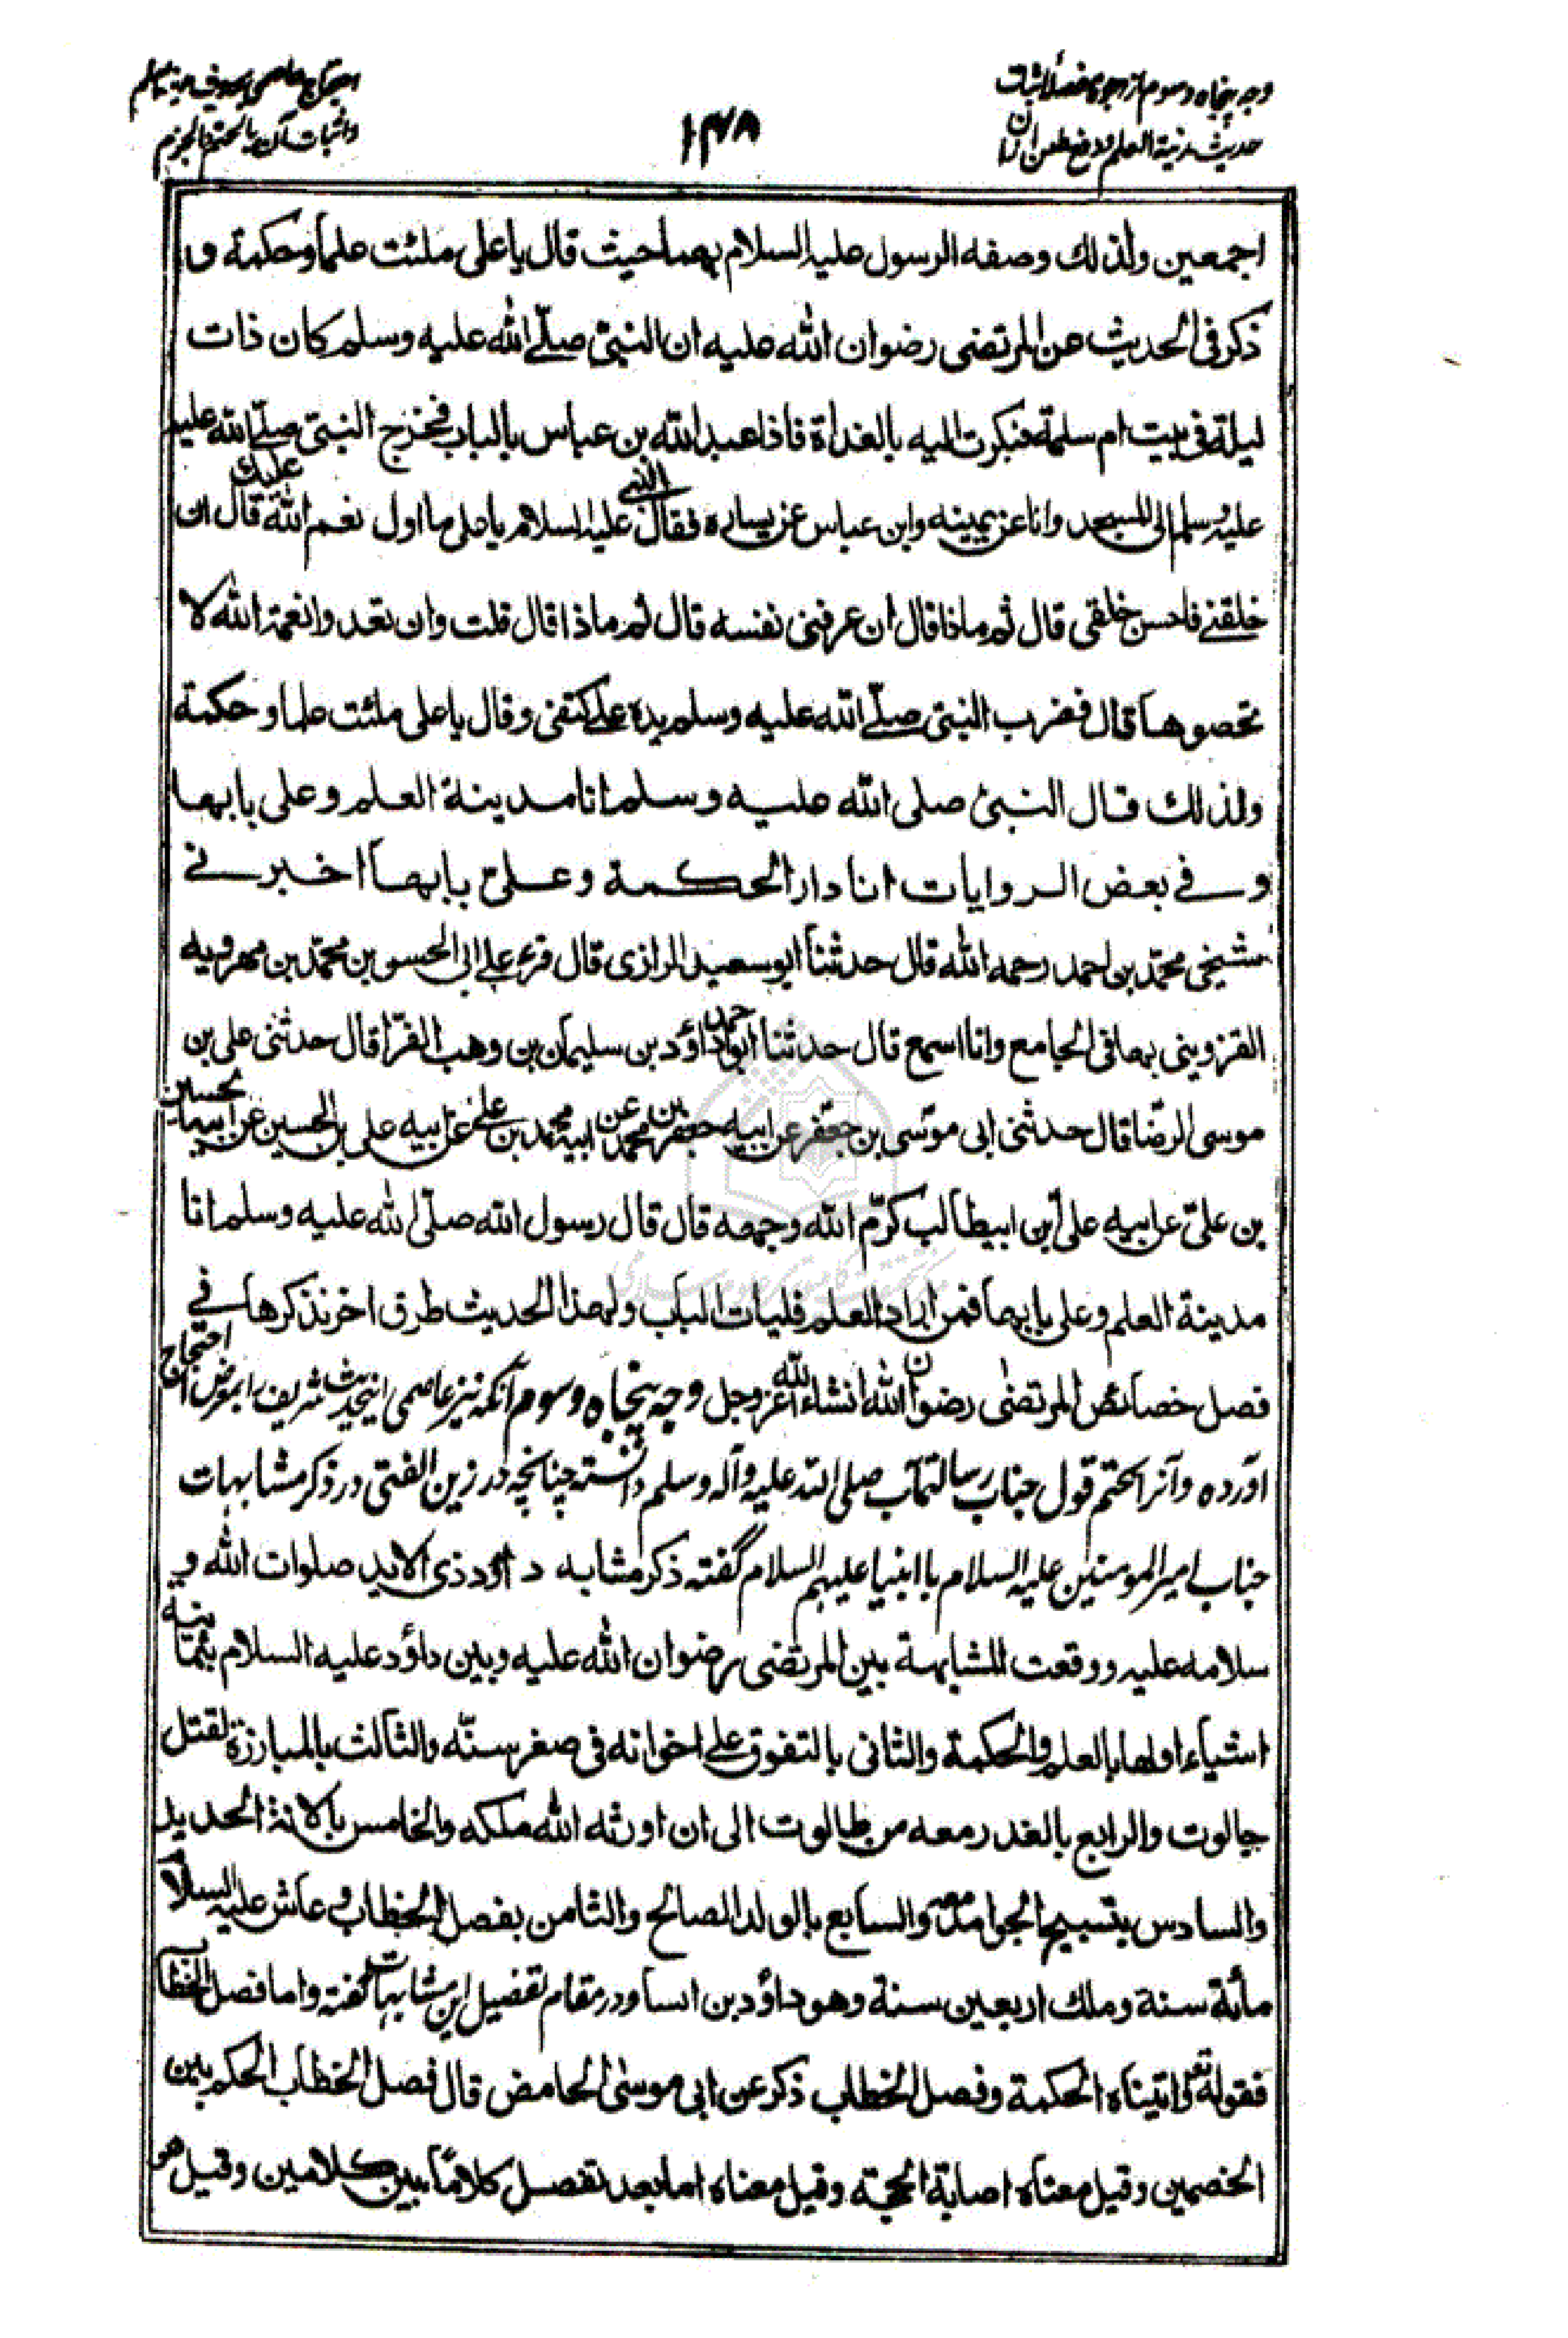 وجه پنجاه و سوم از وجوه مفصلة اثبات
حديث مدينة العلم و دفع طعن از ان
١٤٨
احتجاج عاصمی بحديث مدينة العلم
و اثبات آن بالحتم و الجزم
اجمعين ولذلك وصفه الرسول عليه السلام بهما حيث قال يا علی ملئت علما وحكمة و
ذكر فی الحديث عن المرتضی رضوان الله عليه ان النبی صلّے الله عليه وسلم كان ذات
ليلة فی بيت ام سلمة فبكرت اليه بالغداة فاذا عبد الله بن عباس بالباب فخرج النبی صلّے الله عليه
عليه وسلم الی المسجد وانا عن يمينه وابن عباس عن يساره فقال النبی عليه السلام يا علی ما اول نعم الله عليك قال ان
خلقنی فاحسن خلقی قال ثم ماذا قال ان عرفنی نفسه قال ثم ماذا قال قلت وان تعدوا نعمة الله لا
تحصوها قال فضرب النبی صلّے الله عليه وسلم يده علی كتفی وقال يا علی ملئت علما وحكمة
ولذلك قال النبی صلی الله عليه وسلم انا مدينة العلم وعلی بابها
وفے بعض الروايات انا دار الحكمة وعلی بابها اخبرنے
شيخی محمد بن احمد رحمه الله قال حدثنا ابو سعيد الرازی قال قرئ علی ابی الحسن بن محمد بن مهرويه
القزوينی بها فی الجامع وانا اسمع قال حدثنا ابو احمد داؤد بن سليمان بن وهب الفرا قال حدثنی علی بن
موسی الرضا قال حدثنی ابی موسی بن جعفر عن ابيه جعفر بن محمد عن ابيه محمد بن علی عن ابيه علی بن الحسين عن ابيه الحسين
بن علی عن ابيه علی بن ابيطالب كرّم الله وجهه قال قال رسول الله صلّی الله عليه وسلم انا
مدينة العلم وعلی بابها فمن اراد العلم فليات الباب ولهذا الحديث طرق اخر نذكرها فے
فصل خصائص المرتضی رضوان الله انشاء الله عز وجل وجه پنجاه و سوم آنكه نيز عاصمی اينحديث شريف را بمعرض احتجاج
آورده و آنرا بالحتم قول جناب رسالتمآب صلی الله عليه وآله وسلم دانسته چنانچه در زين الفتی در ذكر مشابهات
جناب امير المومنين عليه السلام با انبيا عليهم السلام گفته ذكر مشابه داؤد ذی الايد صلوات الله و
سلامه عليه ووقعت المشابهة بين المرتضی رضوان الله عليه وبين داؤد عليه السلام بثمانية
اشياء اولها بالعلم والحكمة والثانی بالتفوق علی اخوانه فی صغر سنّه والثالث بالمبارزة لقتل
جالوت والرابع بالغدر معه من طالوت الی ان اورثه الله ملكه والخامس بالانة الحديد
والسادس بتسبيح الجوامد معه والسابع بالولد الصالح والثامن بفصل الخطاب وعاش عليه السلام
مأئة سنة وملك اربعين سنة وهو داؤد بن ايسا و در مقام تفصيل اين مشابهات گفته واما فصل الخطاب
فقوله تع واتيناه الحكمة وفصل الخطاب ذكر عن ابی موسی الحامض قال فصل الخطاب الحكم بين
الخصمين وقيل معناه اصابة الحجة وقيل معناه اما بعد تفصل كلاما بين كلامين وقيل هو